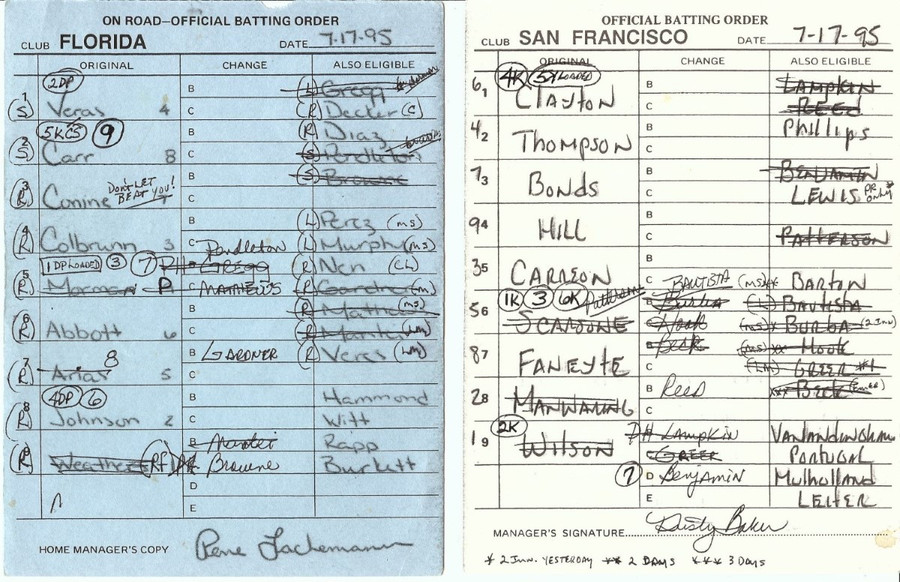 ON ROAD–OFFICIAL BATTING ORDER
CLUB FLORIDA DATE 7-17-95
ORIGINAL CHANGE ALSO ELIGIBLE
2DP
1 (S) Veras 4 B (L) Gregg
C (R) Decker (C)
5K'S 9
2 (S) Carr 8 B (R) Diaz
C (S) Pendleton
3 (R) Conine DON'T LET BEAT YOU! 7 B (S) Browne
C
4 (R) Colbrunn 3 B (L) Perez (MS)
C Pendleton (L) Murphy (MS)
1 DP LOADED 3 7
5 (R) Morman PH B GREGG (R) Nen (CL)
P C MATHEWS (R) Gardner (LM)
6 (R) Abbott 6 B (R) Mathews (MS)
C (R) Mantei (LM)
8
7 (R) Arias 5 B GARDNER (R) Veres (LM)
C
4DP 6
8 (R) Johnson 2 B Hammond
C Witt
9 (R) Weathers RF B Mantei Rapp
PH C Browne Burkett
D
E
HOME MANAGER'S COPY Rene Lachemann
OFFICIAL BATTING ORDER
CLUB SAN FRANCISCO DATE 7-17-95
ORIGINAL CHANGE ALSO ELIGIBLE
4K 5X LOADED
6 1 CLAYTON B LAMPKIN
C REED
4 2 THOMPSON B Phillips
C
7 3 BONDS B BENJAMIN
C LEWIS PR ONLY
9 4 HILL B
C PATTERSON
3 5 CARREON B
C BAUTISTA (MS) BARTON
1K 3 6K Patterson
5 6 SCARSONE B Burba (L) BAUTISTA
C Hook (MS) X BURBA (2 INN)
8 7 FANEYTE B Beck (MS) XX HOOK
C (LM) GREER #1
2 8 MANWARING B REED XXX BECK
C
2K
1 9 WILSON PH B LAMPKIN VANLANDINGHAM
C GREER PORTUGAL
7 D BENJAMIN Mulholland
E LEITER
MANAGER'S SIGNATURE Dusty Baker
* 2 INN. YESTERDAY ** 2 DAYS *** 3 DAYS